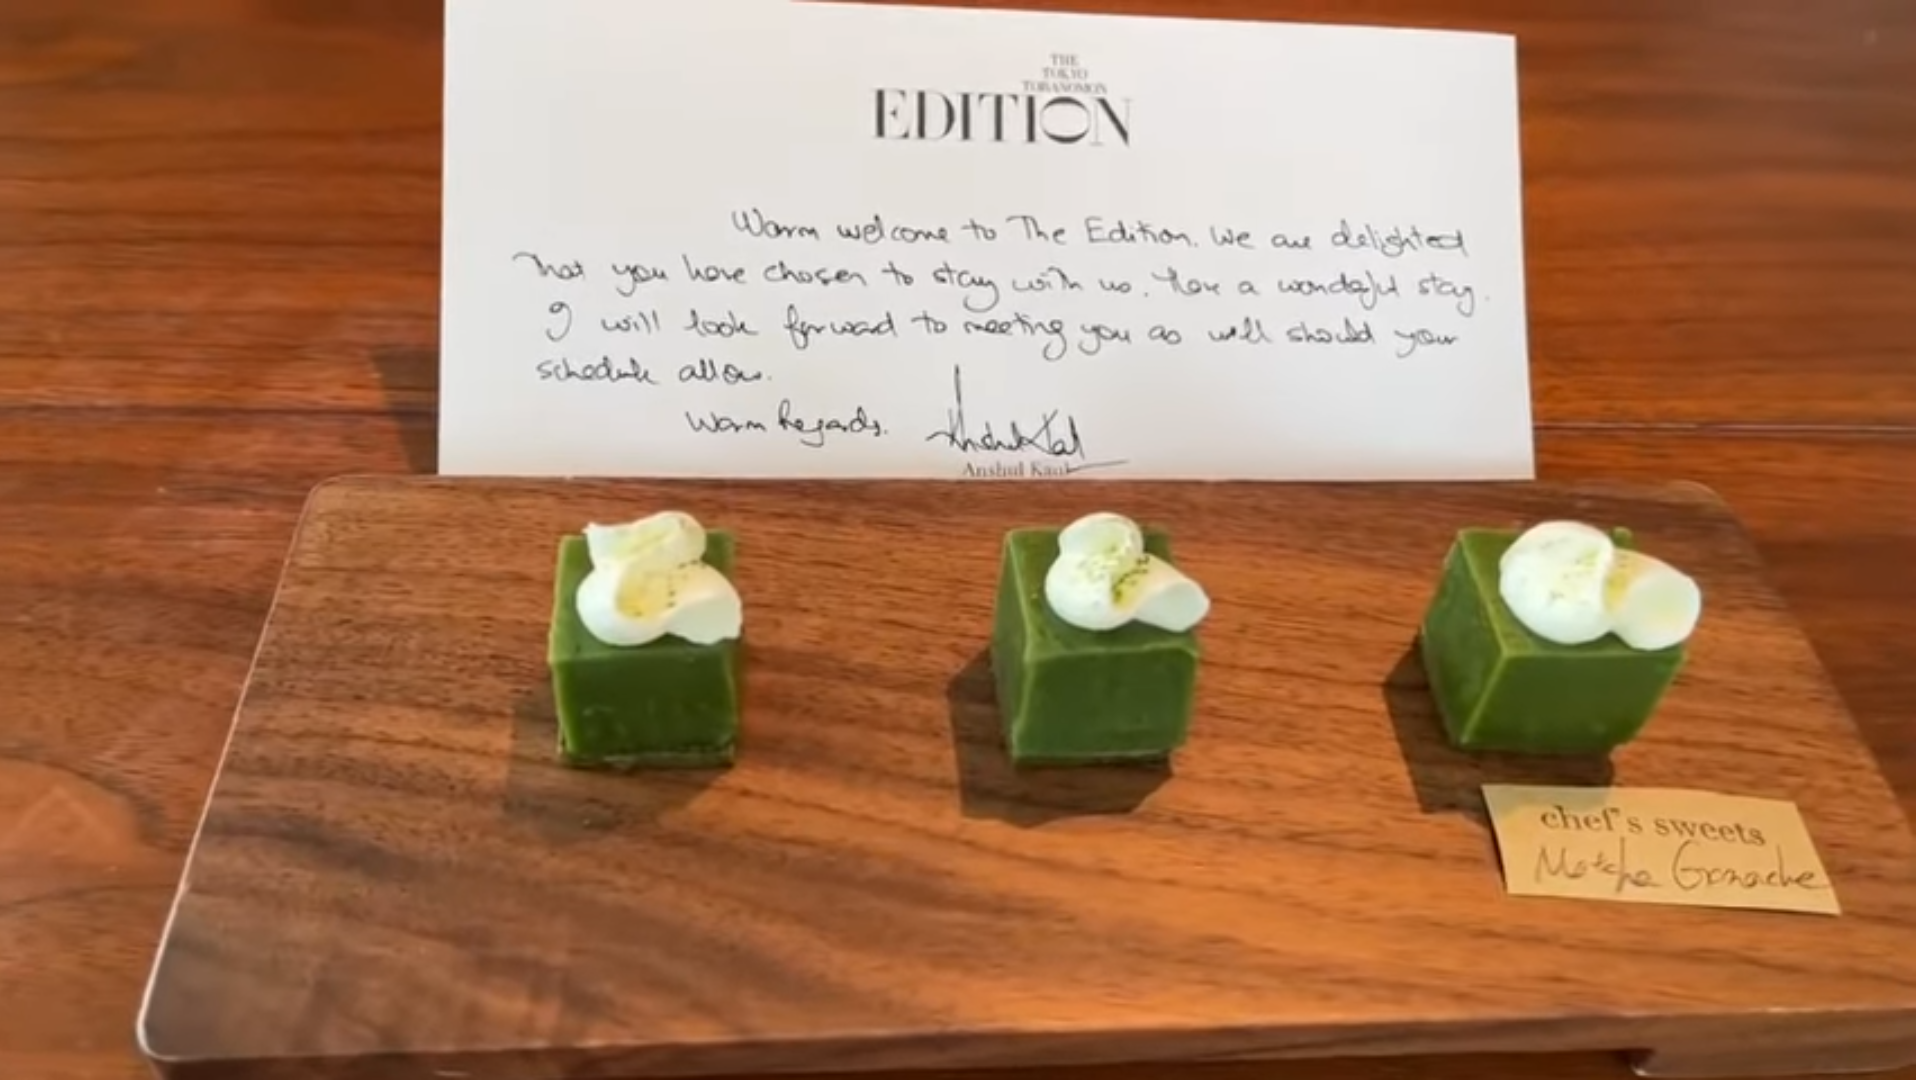 THE
TOKYO
TORANOMON
EDITION
Warm welcome to The Edition. We are delighted
that you have chosen to stay with us. Have a wonderful stay.
I will look forward to meeting you as well should your
schedule allow.
Warm Regards.
Anshul Kaul
chef's sweets
Matcha Ganache